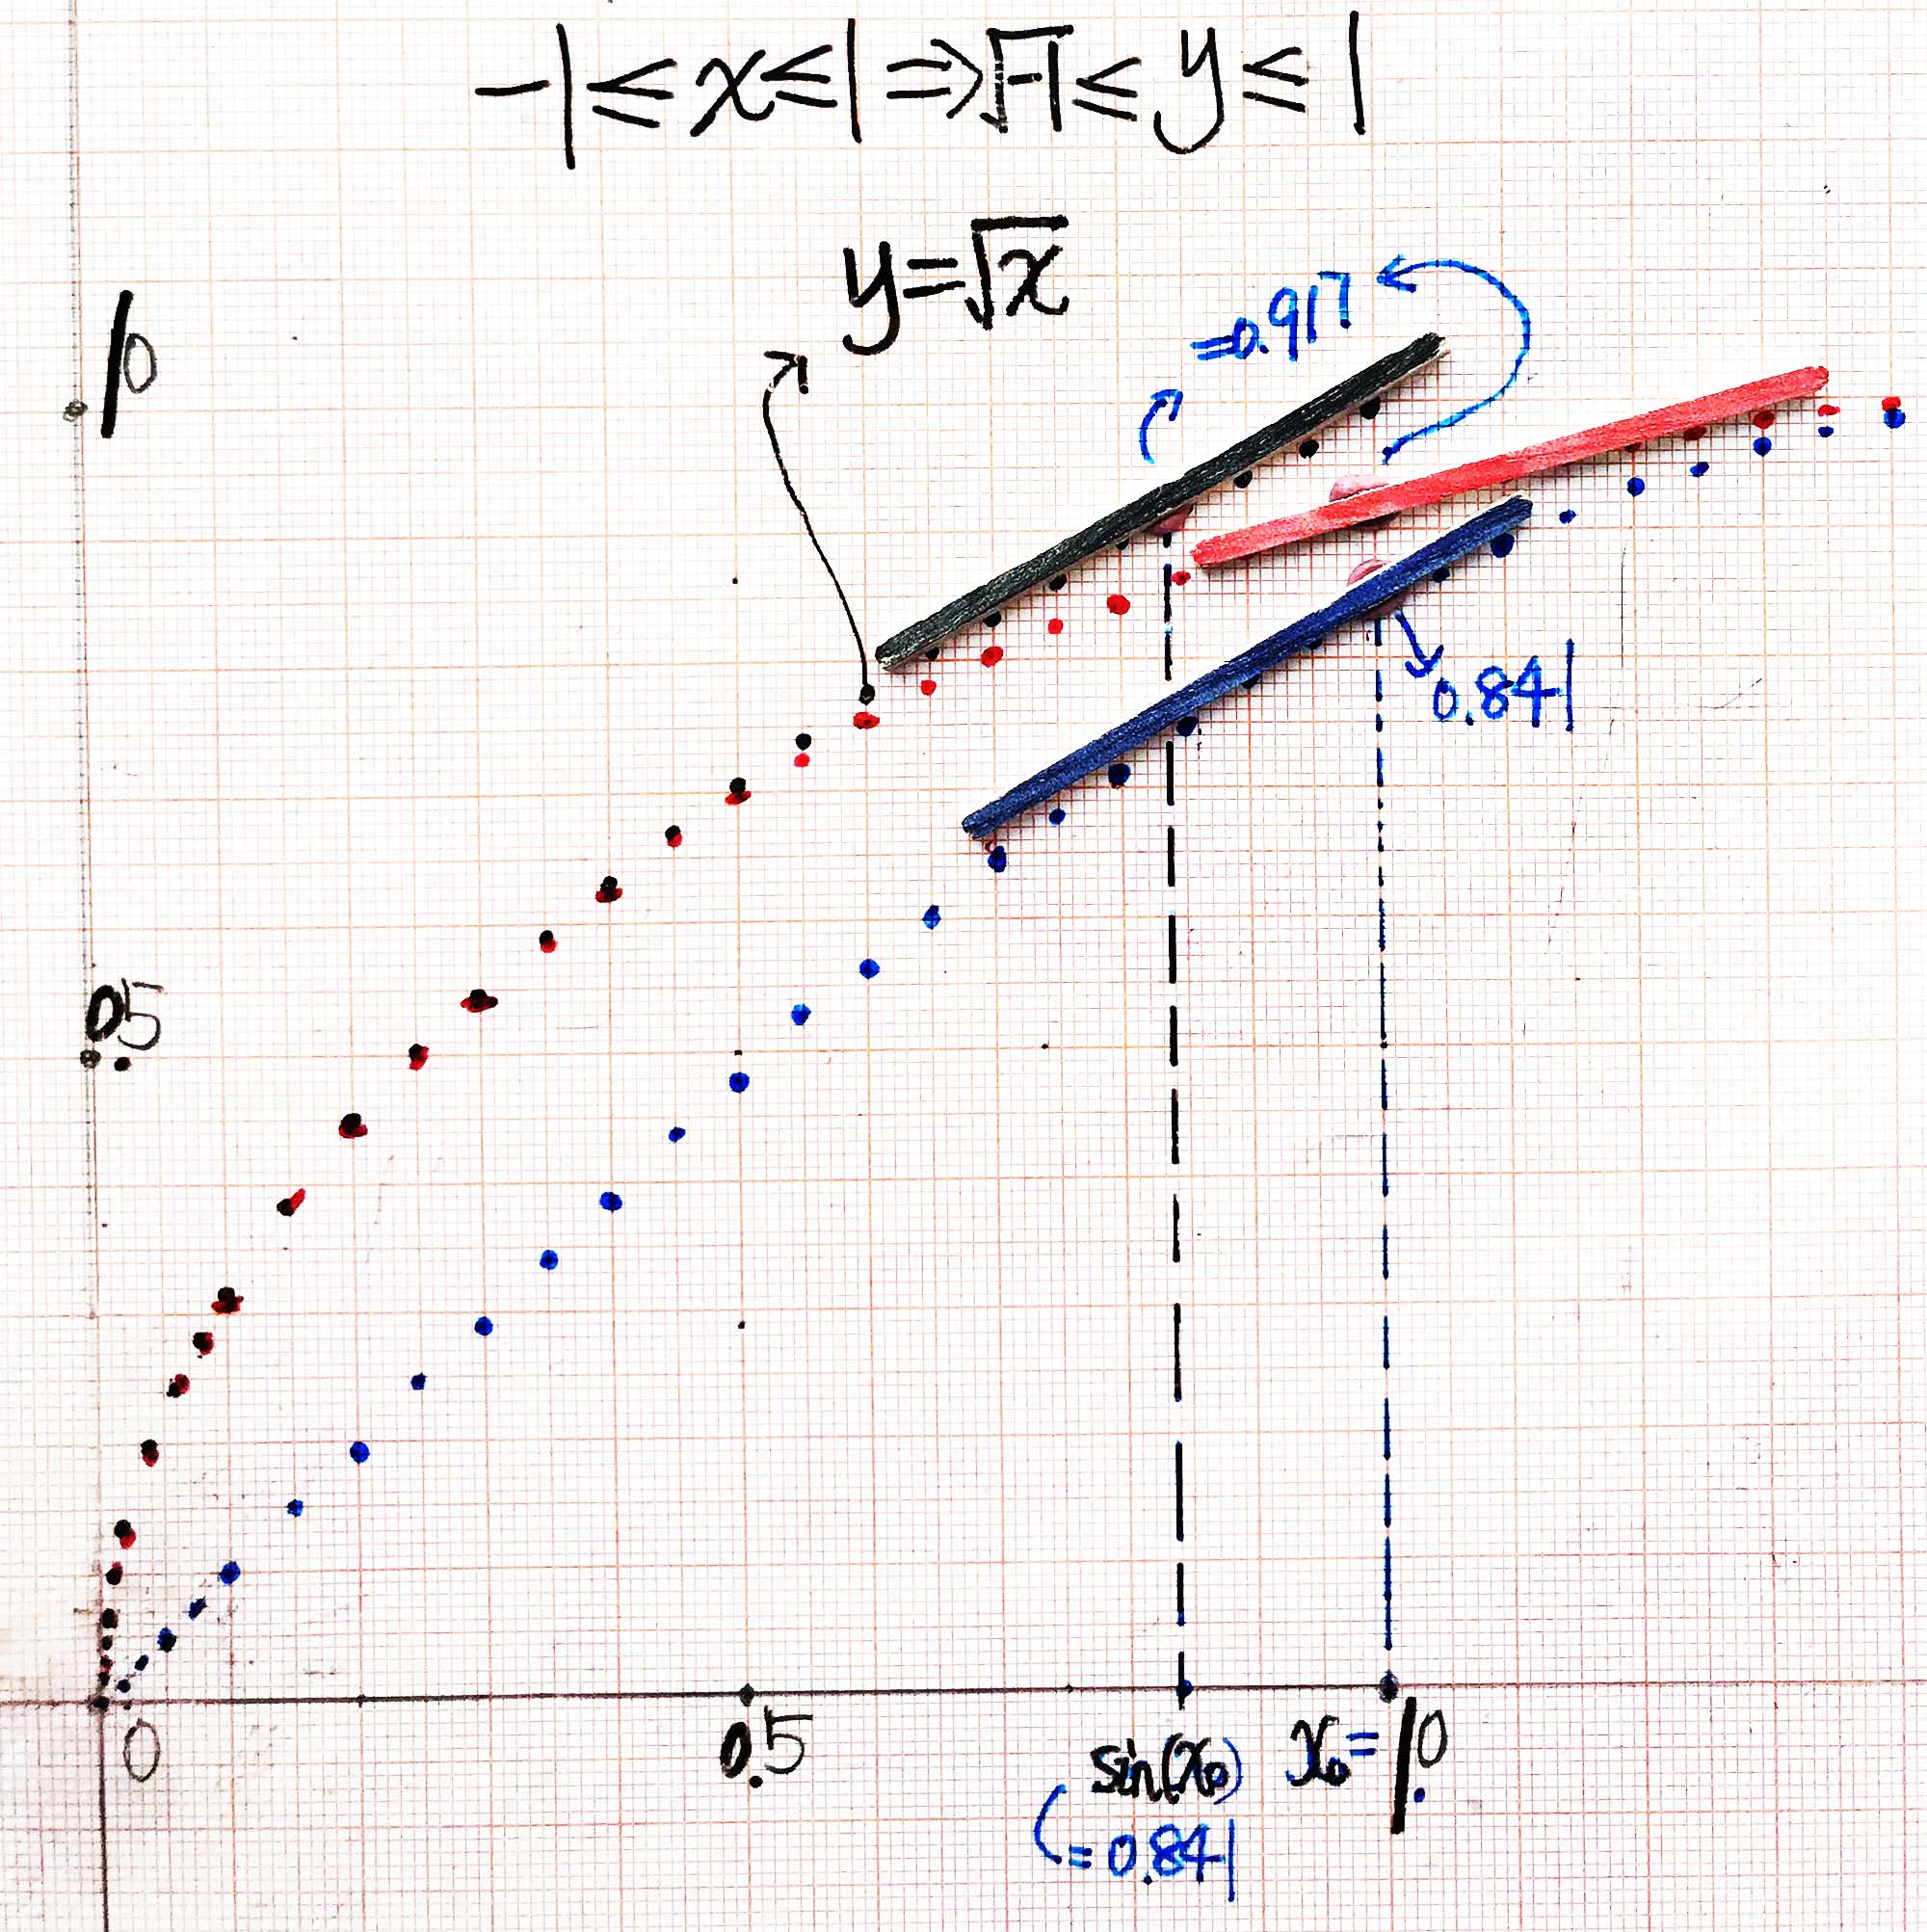 -1≤x≤1⇒√-1≤y≤1
y=√x
=0.917
1.0
0.841
0.5
0
0.5
sin(x₀)
=0.841
x₀=1.0